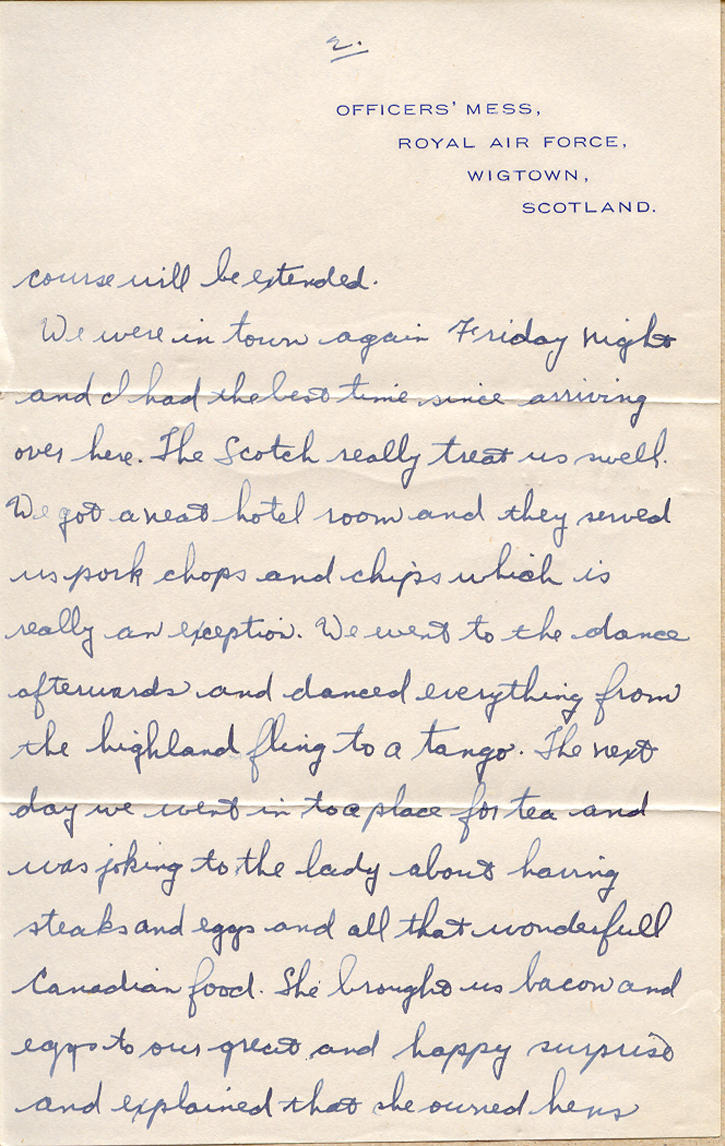 2.
OFFICERS' MESS,
ROYAL AIR FORCE,
WIGTOWN,
SCOTLAND.
course will be extended.
We were in town again Friday night
and I had the best time since arriving
over here. The Scotch really treat us swell.
We got a neat hotel room and they served
us pork chops and chips which is
really an exception. We went to the dance
afterwards and danced everything from
the highland fling to a tango. The next
day we went in to a place for tea and
was joking to the lady about having
steaks and eggs and all that wonderfull
Canadian food. She brought us bacon and
eggs to our great and happy surprise
and explained that she owned hens